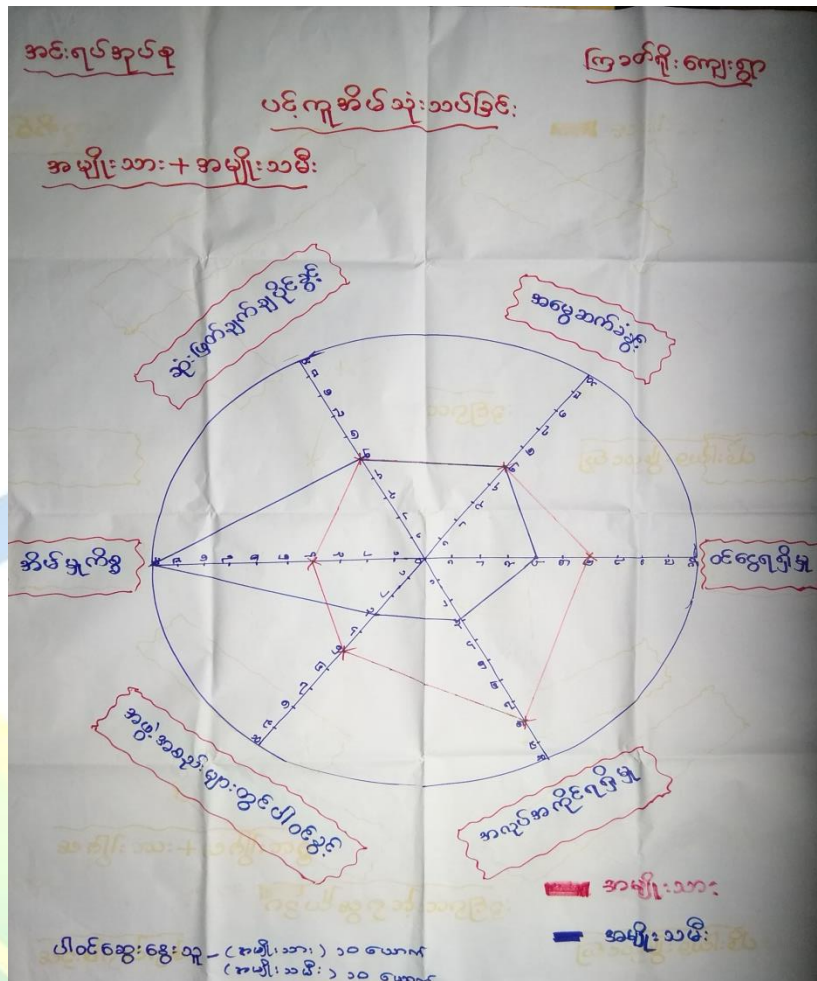 အင်းရပ်အုပ်စု
ကြခတ်ရိုးကျေးရွာ
ပင့်ကူအိမ်သုံးသပ်ခြင်း
အမျိုးသား+အမျိုးသမီး
ဆုံးဖြတ်ချက်ချပိုင်ခွင့်
အမွေဆက်ခံခွင့်
အိမ်မှုကိစ္စ
ဝင်ငွေရရှိမှု
အဖွဲ့အစည်းများတွင်ပါဝင်ခွင့်
အလုပ်အကိုင်ရရှိမှု
အမျိုးသား
အမျိုးသမီး
ပါဝင်ဆွေးနွေးသူ - (အမျိုးသား) ၁၀ ယောက်
(အမျိုးသမီး) ၁၀ ယောက်